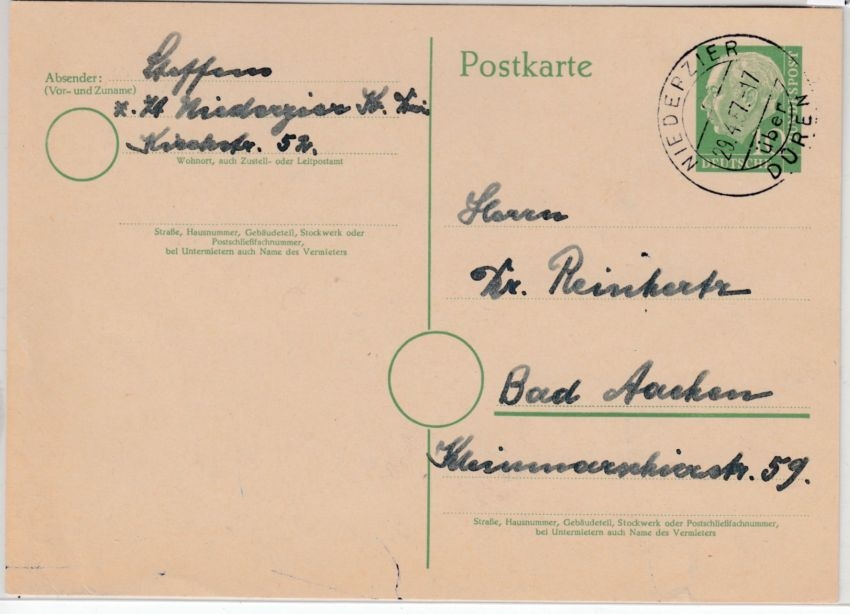 Absender: Steffens
(Vor- und Zuname)
z. Zt Niederzier Kr. Dür
Kirchstr. 52.
Wohnort, auch Zustell- oder Leitpostamt
Straße, Hausnummer, Gebäudeteil, Stockwerk oder
Postschließfachnummer,
bei Untermietern auch Name des Vermieters
Postkarte
NIEDERZIER
über
DÜREN
29.4.57.-17
DEUTSCHE
Herrn
Dr. Reinkertz
Bad Aachen
Kleinmarschierstr. 59.
Straße, Hausnummer, Gebäudeteil, Stockwerk oder Postschließfachnummer,
bei Untermietern auch Name des Vermieters